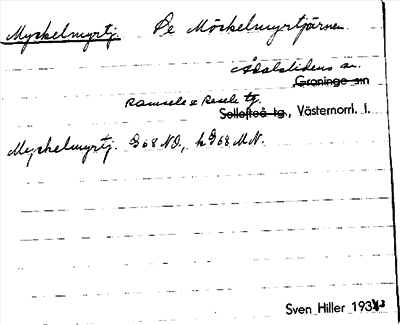 Myckelmyrtj. Se Möckelmyrtjärnen.
Ådalslidens sn.
Graninge sn
Ramsele o Resele tg.
Sollefteå tg., Västernorrl. l.
Myckelmyrtj. 968 NO, h 968 MN.
Sven Hiller 1933